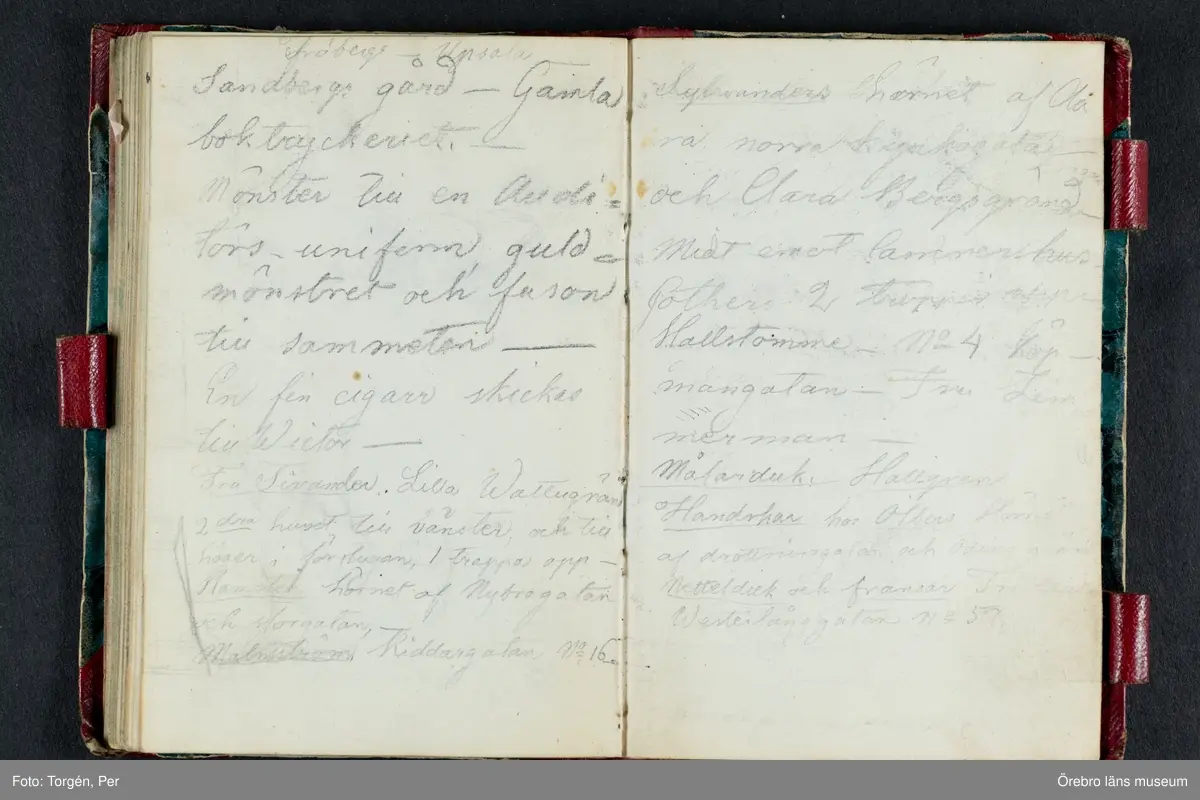 Fröbergs – Upsala
Sandbergs gård – Gamla
boktryckeriet. –
Mönster till en Audi=
törs-uniform, guld=
mönstret och fason
till sammeten –
En fin cigarr skickas
till Victor –
Fru Sivander. Lilla Wattugränd
2dra huset till vänster, och till
höger i förstugan, 1 trappa opp –
hörnet af Nybrogatan
och storgatan, –
Malmström, Riddargatan No 16
Sylvanders hörnet af Cla
ra norra kyrkogata
och Clara Bergsgränd
Midt emot Cammarihus
2 trappor
Hallströmme – No 4 Köp –
mangatan – Fru Zim
merman –
Målarduk. Hallgren
Handskar hos Öfbers
af drottninggatan och
Netteldiek och fransar
Westerlånggatan No 57
Foto: Torgén, Per
Örebro läns museum